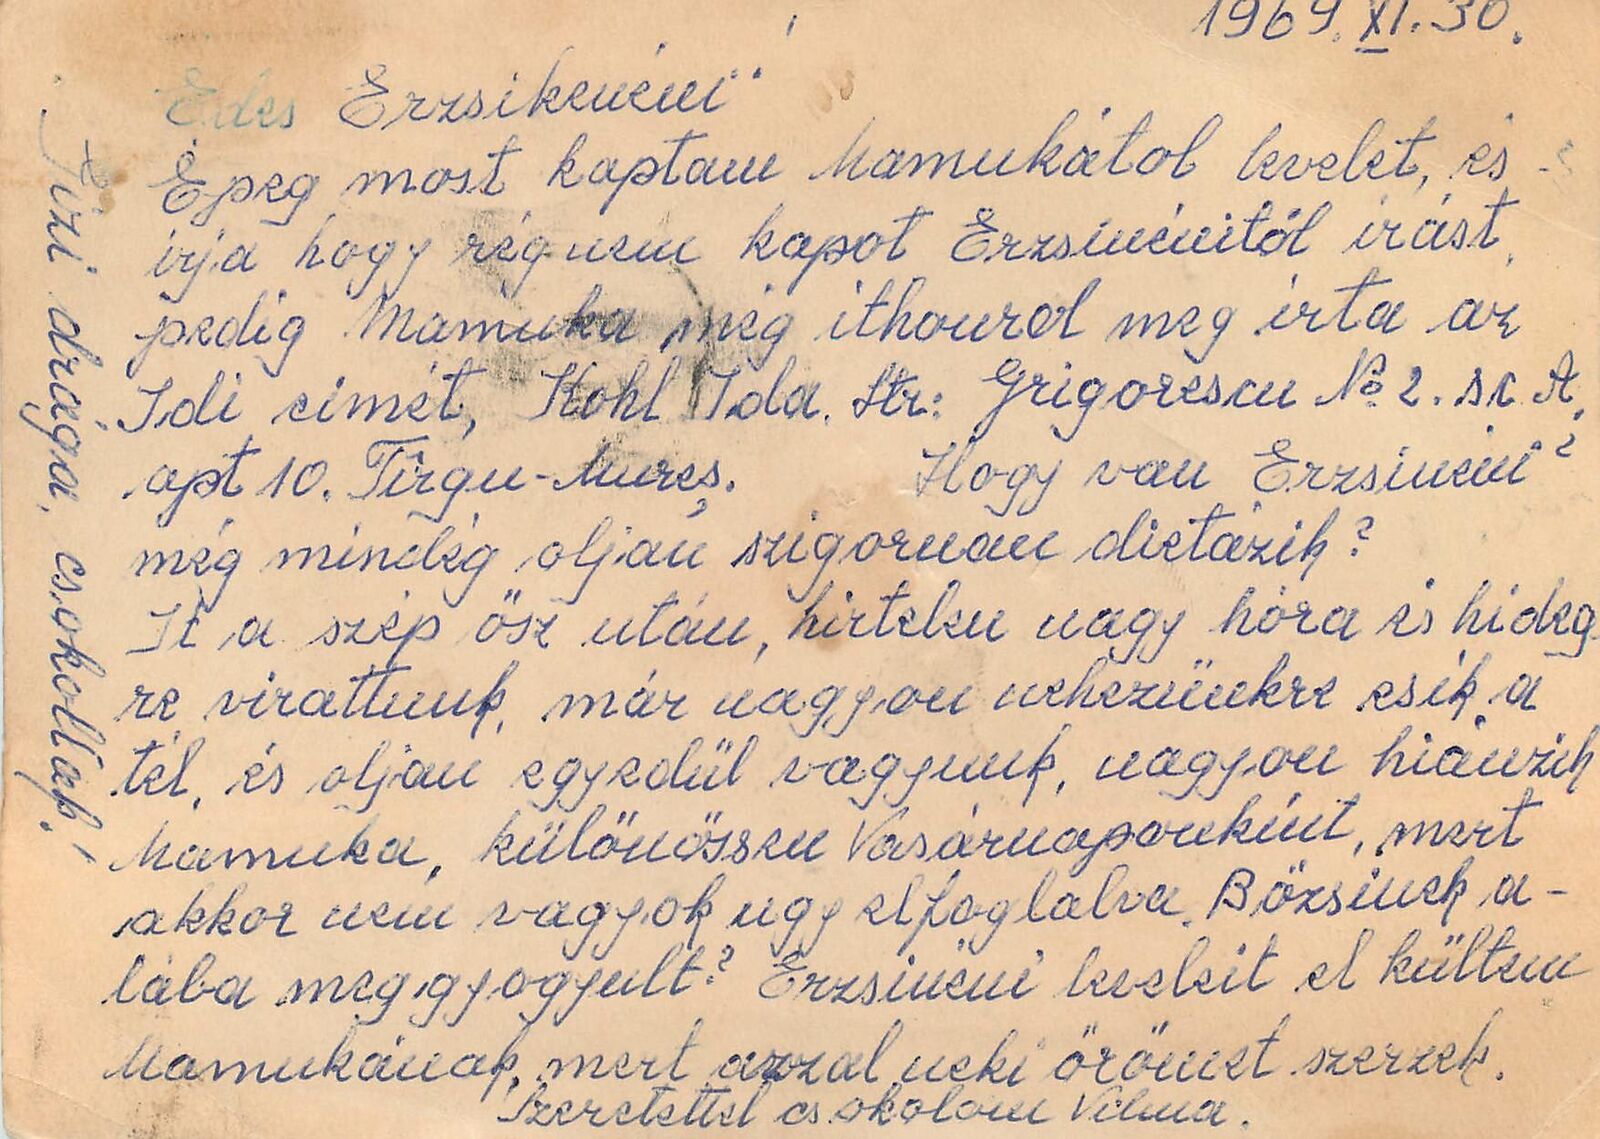 1969. XI. 30.
Édes Erzsikenéni
Épeg most kaptam Mamukátol levelet, és
irja hogy rég nem kapot Erzsinénitől irást,
pedig Mamuka még ithonrol meg irta az
Idi cimét, Kohl Ida. Str: Grigorescu No 2. sc A,
apt 10. Tîrgu-Mureș. Hogy van Erzsinéni?
még mindég oljan szigoruan dietázik?
It a szép ősz után, hirtelen nagy hóra és hideg
re virattunk, már nagyon nehezünkre esik a
tél, és oljan egyedül vagyunk, nagyon hiánzik
Mamuka, különössen Vasárnaponkint, mert
akkor nem vagyok ugy elfoglalva. Bözsinek a-
lába meg gyogyult? Erzsinéni leveleit el kültem
Mamukának, mert azzal neki örömet szerzek.
Szeretettel csokolom Vilma.
drága, csokollak!